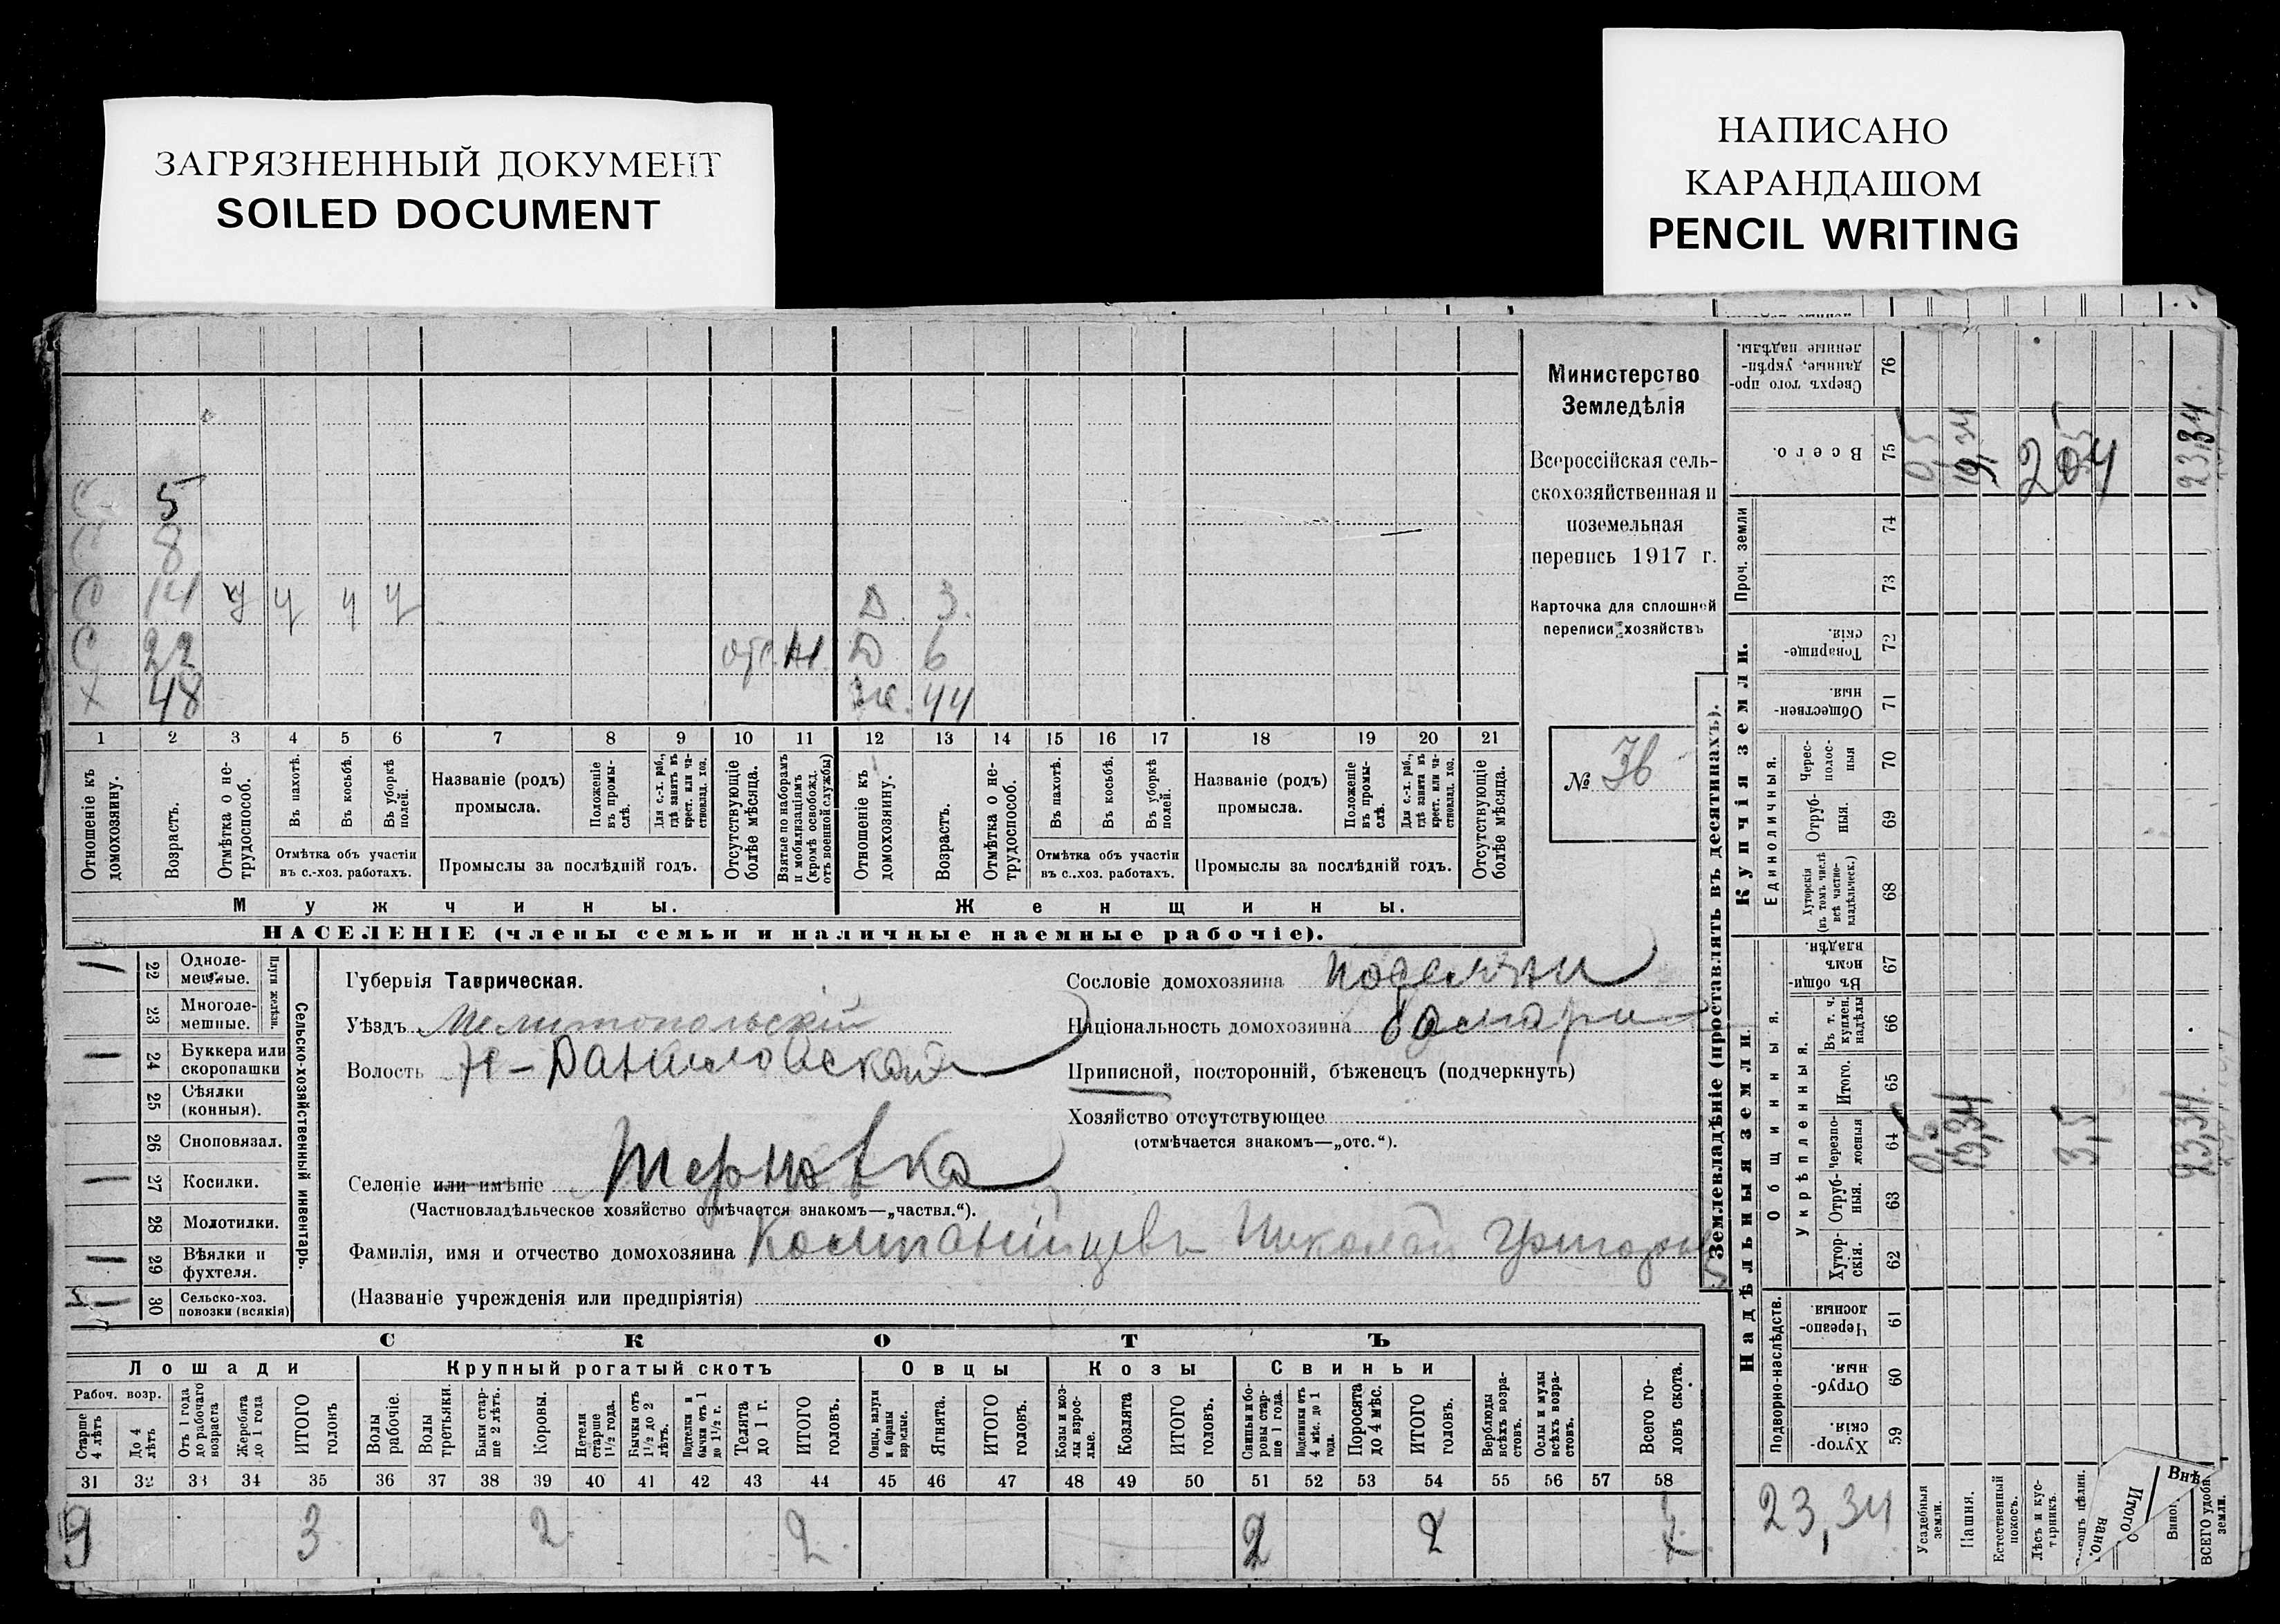 ЗАГРЯЗНЕННЫЙ ДОКУМЕНТ
SOILED DOCUMENT
НАПИСАНО
КАРАНДАШОМ
PENCIL WRITING
С 5
С 8
С 14 ч ч ч ч Д. 3.
С 22 отс. Д 6
Х 48 Же. 44
1 2 3 4 5 6 7 8 9 10 11 12 13 14 15 16 17 18 19 20 21
Отношеніе къ домохозяину.
Возрастъ.
Отмѣтка о не-трудоспособ.
Въ пахотѣ.
Въ косьбѣ.
Въ уборкѣ полей.
Отмѣтка объ участіи въ с.-хоз. работахъ.
Названіе (родъ) промысла.
Положеніе въ промы-слѣ.
Для с.-х. раб., гдѣ занятъ въ крест. или ча-стновлад. хоз.
Промыслы за послѣдній годъ.
Отсутствующіе болѣе мѣсяца.
Взятые по наборамъ и мобилизаціямъ (кромѣ освобожд. отъ военной службы)
Отношеніе къ домохозяину.
Возрастъ.
Отмѣтка о не-трудоспособ.
Въ пахотѣ.
Въ косьбѣ.
Въ уборкѣ полей.
Отмѣтка объ участіи въ с.-хоз. работахъ.
Названіе (родъ) промысла.
Положеніе въ промы-слѣ.
Для с.-х. раб., гдѣ занята въ крест. или ча-стновлад. хоз.
Промыслы за послѣдній годъ.
Отсутствующіе болѣе мѣсяца.
Мужчины. Женщины.
НАСЕЛЕНІЕ (члены семьи и наличные наемные рабочіе).
Министерство
Земледѣлія
Всероссійская сель-
скохозяйственная и
поземельная
перепись 1917 г.
Карточка для сплошной
переписи хозяйствъ
№ 36
22 Одноле-мешные.
23 Многоле-мешные.
Плуги желѣзн.
24 Буккера или скоропашки
25 Сѣялки (конныя).
26 Сноповязал.
27 Косилки.
28 Молотилки.
29 Вѣялки и фухтеля.
30 Сельско-хоз. повозки (всякія)
Сельско-хозяйственный инвентарь.
Губернія Таврическая.
Уѣздъ Мелитопольскій
Волость Н-Даниловской
Селеніе или имѣніе Терновка
(Частновладѣльческое хозяйство отмѣчается знакомъ—„частвл.“).
Фамилія, имя и отчество домохозяина Николай
(Названіе учрежденія или предпріятія)
Сословіе домохозяина поселяни
Національность домохозяина
Приписной, посторонній, бѣженецъ (подчеркнуть)
Хозяйство отсутствующее
(отмѣчается знакомъ—„отс.“).
СКОТЪ
Лошади Крупный рогатый скотъ Овцы Козы Свиньи
Рабоч. возр.
Старше 4 лѣтъ
До 4 лѣтъ
Отъ 1 года до рабочаго возраста
Жеребята до 1 года
ИТОГО головъ
Волы рабочіе.
Волы третьяки.
Быки стар-ше 2 лѣтъ.
Коровы.
Нетели старше 1½ года.
Бычки отъ 1½ до 2 лѣтъ.
Подтелки и бычки отъ 1 до 1½ г.
Телята до 1 г.
ИТОГО головъ.
Овцы, валухи и бараны взрослые.
Ягнята.
ИТОГО головъ.
Козы и коз-лы взрос-лые.
Козлята
ИТОГО головъ.
Свиньи и бо-ровы стар-ше 1 года.
Подсвинки отъ 4 мѣс. до 1 года.
Поросята до 4 мѣс.
ИТОГО головъ.
Верблюды всѣхъ возра-стовъ.
Ослы и мулы всѣхъ возра-стовъ.
Всего го-ловъ скота.
31 32 33 34 35 36 37 38 39 40 41 42 43 44 45 46 47 48 49 50 51 52 53 54 55 56 57 58
3 2 2. 2 2
Землевладѣніе (проставлять въ десятинахъ).
Сверхъ того про-данные, укрѣп-ленные надѣлы. 76
Всего. 75 0,5 19,34 23,34
Проч. земли 74 73
Купчія земли.
Товарище-скія. 72
Обществен-ныя. 71
Единоличныя.
Черес-полос-ныя 70
Отруб-ныя. 69
Хуторскія (въ томъ числѣ всѣ частно-владѣльческ.) 68
Надѣльныя земли.
Общинныя.
Въ общин-номъ владѣн. 67
Укрѣпленныя.
Въ т. ч. куплен. надѣлы 66
Итого. 65
Черезпо-лосныя 64 0,5 19,34 3,5 23,34.
Отруб-ныя. 63
Хутор-скія. 62
Подворно-наслѣдств.
Черезпо-лосныя. 61
Отруб-ныя. 60
Хутор-скія. 59
23,34
Усадебныя земли.
Пашня.
Естественный покосъ.
Лѣсъ и кус-тарникъ.
Итого
Внѣ
ВСЕГО удобн. земли.